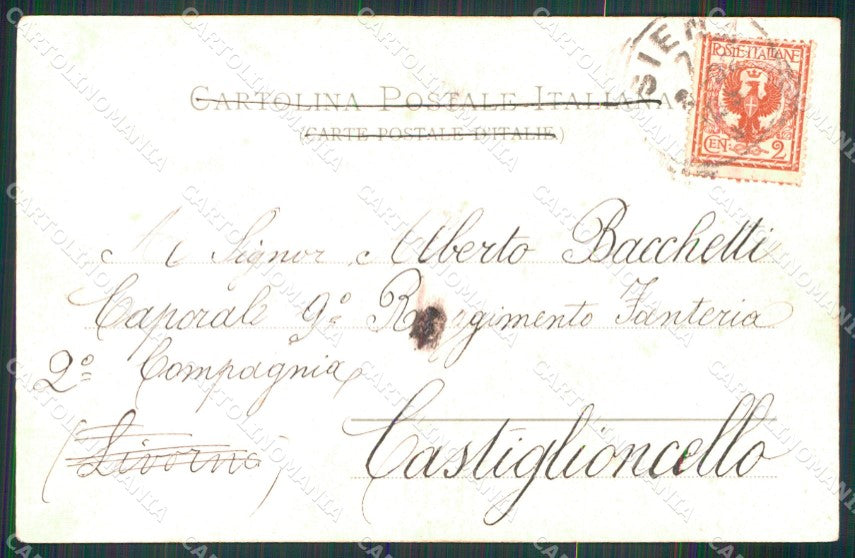 CARTOLINA POSTALE ITALIANA
(CARTE POSTALE D'ITALIE)
SIEN
POSTE ITALIANE
CEN. 2
Al Signor Alberto Bacchetti
Caporale 9º Reggimento Fanteria
2º Compagnia
(Livorno)
Castiglioncello
CARTOLINOMANIA